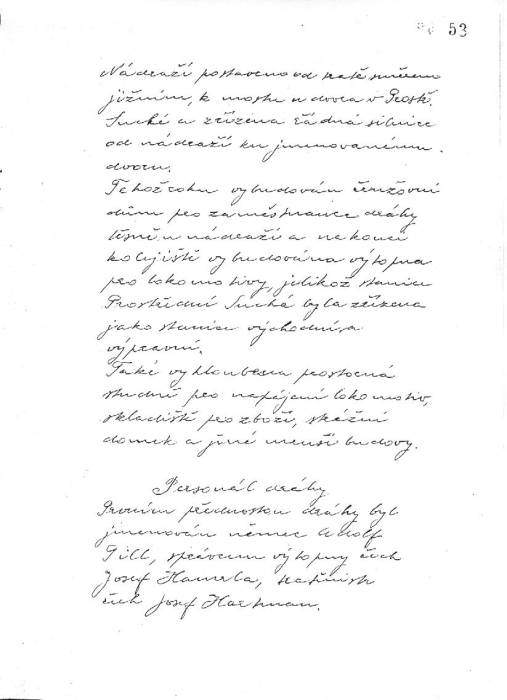 53
Nádraží postaveno od tratě směrem
jižním, k mostu u dvora v Prostř.
Suché a zřízena řádná silnice
od nádraží ku jmenovanému
dvoru.
Téhož roku vybudován činžovní
dům pro zaměstnance dráhy
těsně u nádraží a na konci
kolejiště vybudována výtopna
pro lokomotivy, jelikož stanice
Prostřední Suchá byla zřízena
jako stanice východní a
výpravní.
Také vyhloubena prostorná
studně pro napájení lokomotiv,
skladiště pro zboží, strážní
domek a jiné menší budovy.
Personál dráhy
Prvním přednostou dráhy byl
jmenován němec Adolf
Till, správcem výtopny čech
Josef Hamrla,
čech Josef Hartman.